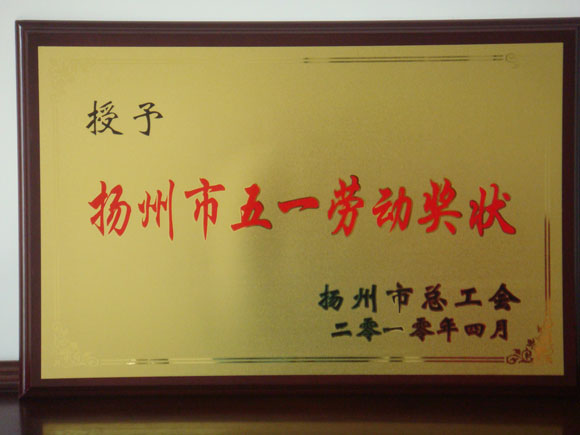 授予
扬州市五一劳动奖状
扬州市总工会
二零一零年四月